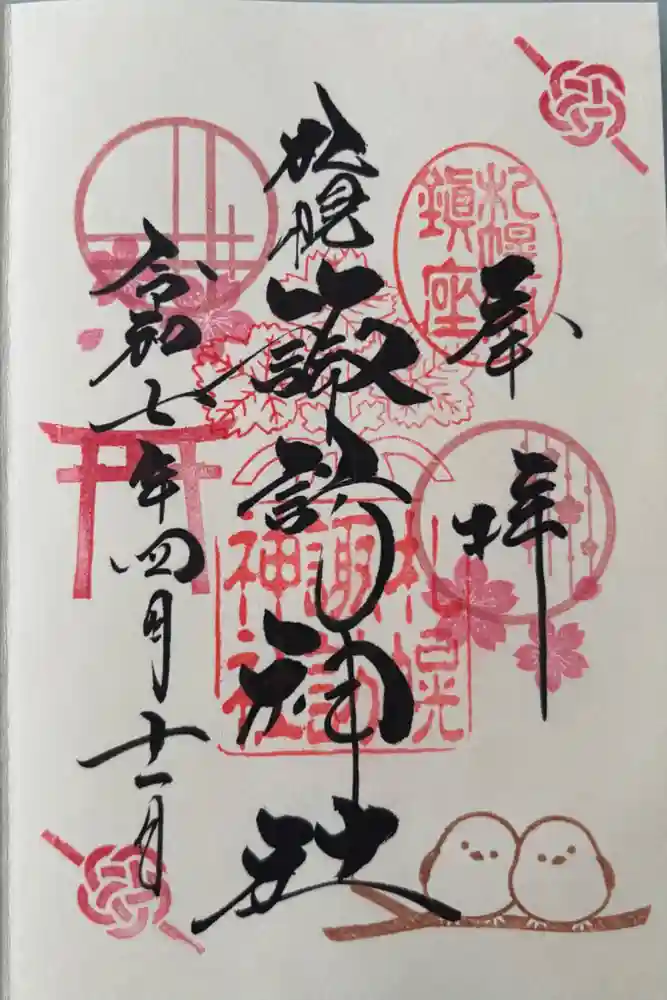 奉拝
札幌鎮座
札幌
諏訪神社
札幌
諏訪
神社
令和七年四月十一日